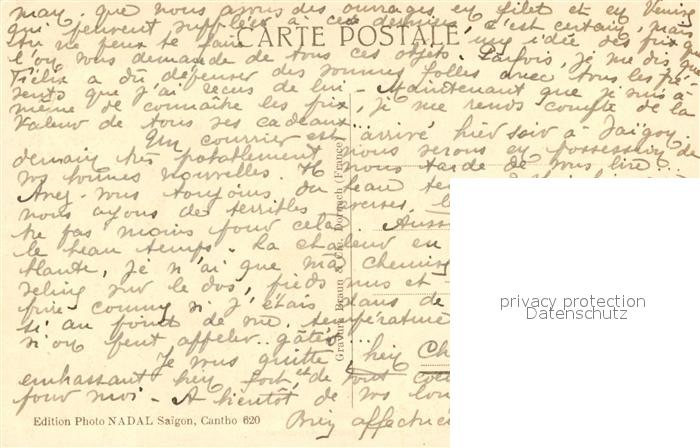 mary. que nous avons des ouvrages en filet et en Venise
qui peuvent suppléer à ce dernier. C'est certain, mais
tu ne peux te faire une idée des prix que
CARTE POSTALE
l'on vous demande de tous ces objets. Parfois, je me dis que
Félix a dû dépenser des sommes folles avec tous les pré-
sents que j'ai reçus de lui - Maintenant que je suis à
même de connaître les prix, je me rends compte de la
valeur de tous ses cadeaux.
Un courrier est arrivé hier soir à Saïgon,
demain très probablement nous serons en possession de
vos bonnes nouvelles. Il nous tarde de vous lire...
Avez-vous toujours du beau
nous ayons de terribles averses,
te pas moins pour cela. Aussi
le beau temps. La chaleur en
, je n'ai que ma chemise
sur le dos, pieds nus et
comme si j'étais dans
si au point de vue température
si on peut appeler gâtés
Je vous quitte, hein Ch
embrassant bien fort, et de tout coeu
pour moi - A bientôt de vos bon
Bien affectue
Gravure Braun & Cie, Dornach (France)
Edition Photo NADAL Saïgon, Cantho 620
privacy protection
Datenschutz